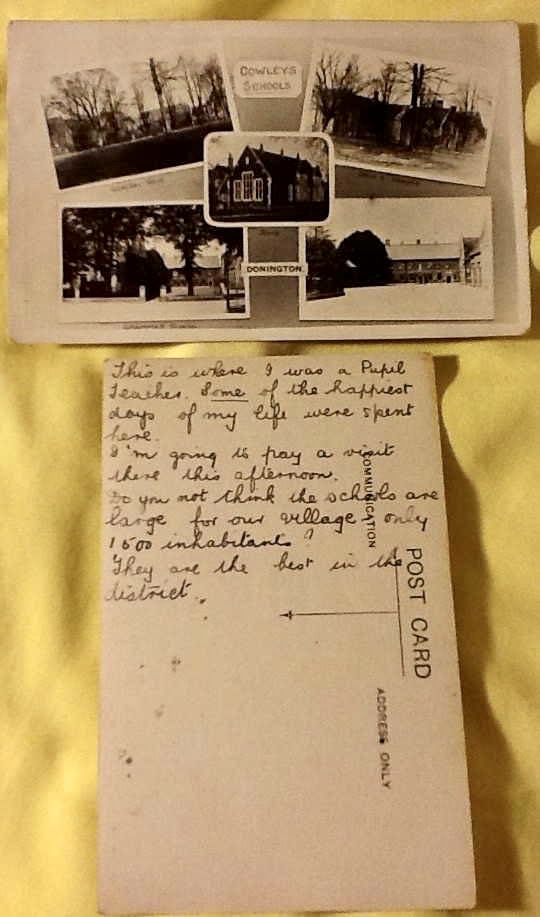 COWLEYS
SCHOOLS
DONINGTON
This is where I was a Pupil
Teacher. Some of the happiest
days of my life were spent
here.
I'm going to pay a visit
there this afternoon.
Do you not think the schools are
large for our village - only
1500 inhabitants?
They are the best in the
district.
COMMUNICATION
POST CARD
ADDRESS ONLY